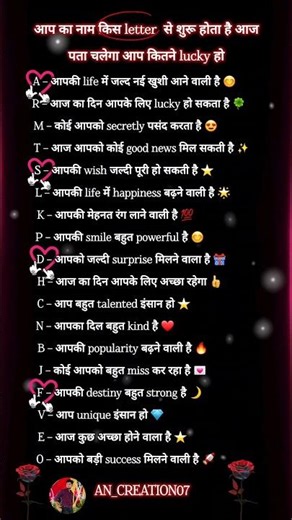 आप का नाम किस letter से शुरू होता है आज
पता चलेगा आप कितने lucky हो
A – आपकी life में जल्द नई खुशी आने वाली है 😊
R – आज का दिन आपके लिए lucky हो सकता है 🍀
M – कोई आपको secretly पसंद करता है 😍
T – आज आपको कोई good news मिल सकती है ✨
S – आपकी wish जल्दी पूरी हो सकती है ⭐
L – आपकी life में happiness बढ़ने वाली है 🌟
K – आपकी मेहनत रंग लाने वाली है 💯
P – आपकी smile बहुत powerful है 😊
D – आपको जल्दी surprise मिलने वाला है 🎁
H – आज का दिन आपके लिए अच्छा रहेगा 👍
C – आप बहुत talented इंसान हो ⭐
N – आपका दिल बहुत kind है ❤️
B – आपकी popularity बढ़ने वाली है 🔥
J – कोई आपको बहुत miss कर रहा है 💌
F – आपकी destiny बहुत strong है 🌙
V – आप unique इंसान हो 💎
E – आज कुछ अच्छा होने वाला है ⭐
O – आपको बड़ी success मिलने वाली है 🚀
AN_CREATION07